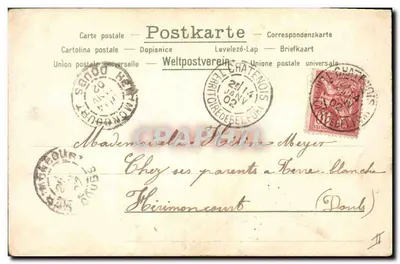 Carte postale - Postkarte - Correspondenzkarte
Cartolina postale - Dopisnice Levelező-Lap - Briefkaart
Union postale universelle - Weltpostverein - Unione postale universale
CHATENOIS
14
JANV
02
HERIMONCOURT
DOUBS
02
Mademoiselle Hélène Meyer
Chez ses parents à Terre-blanche
Hérimoncourt (Doubs)
II